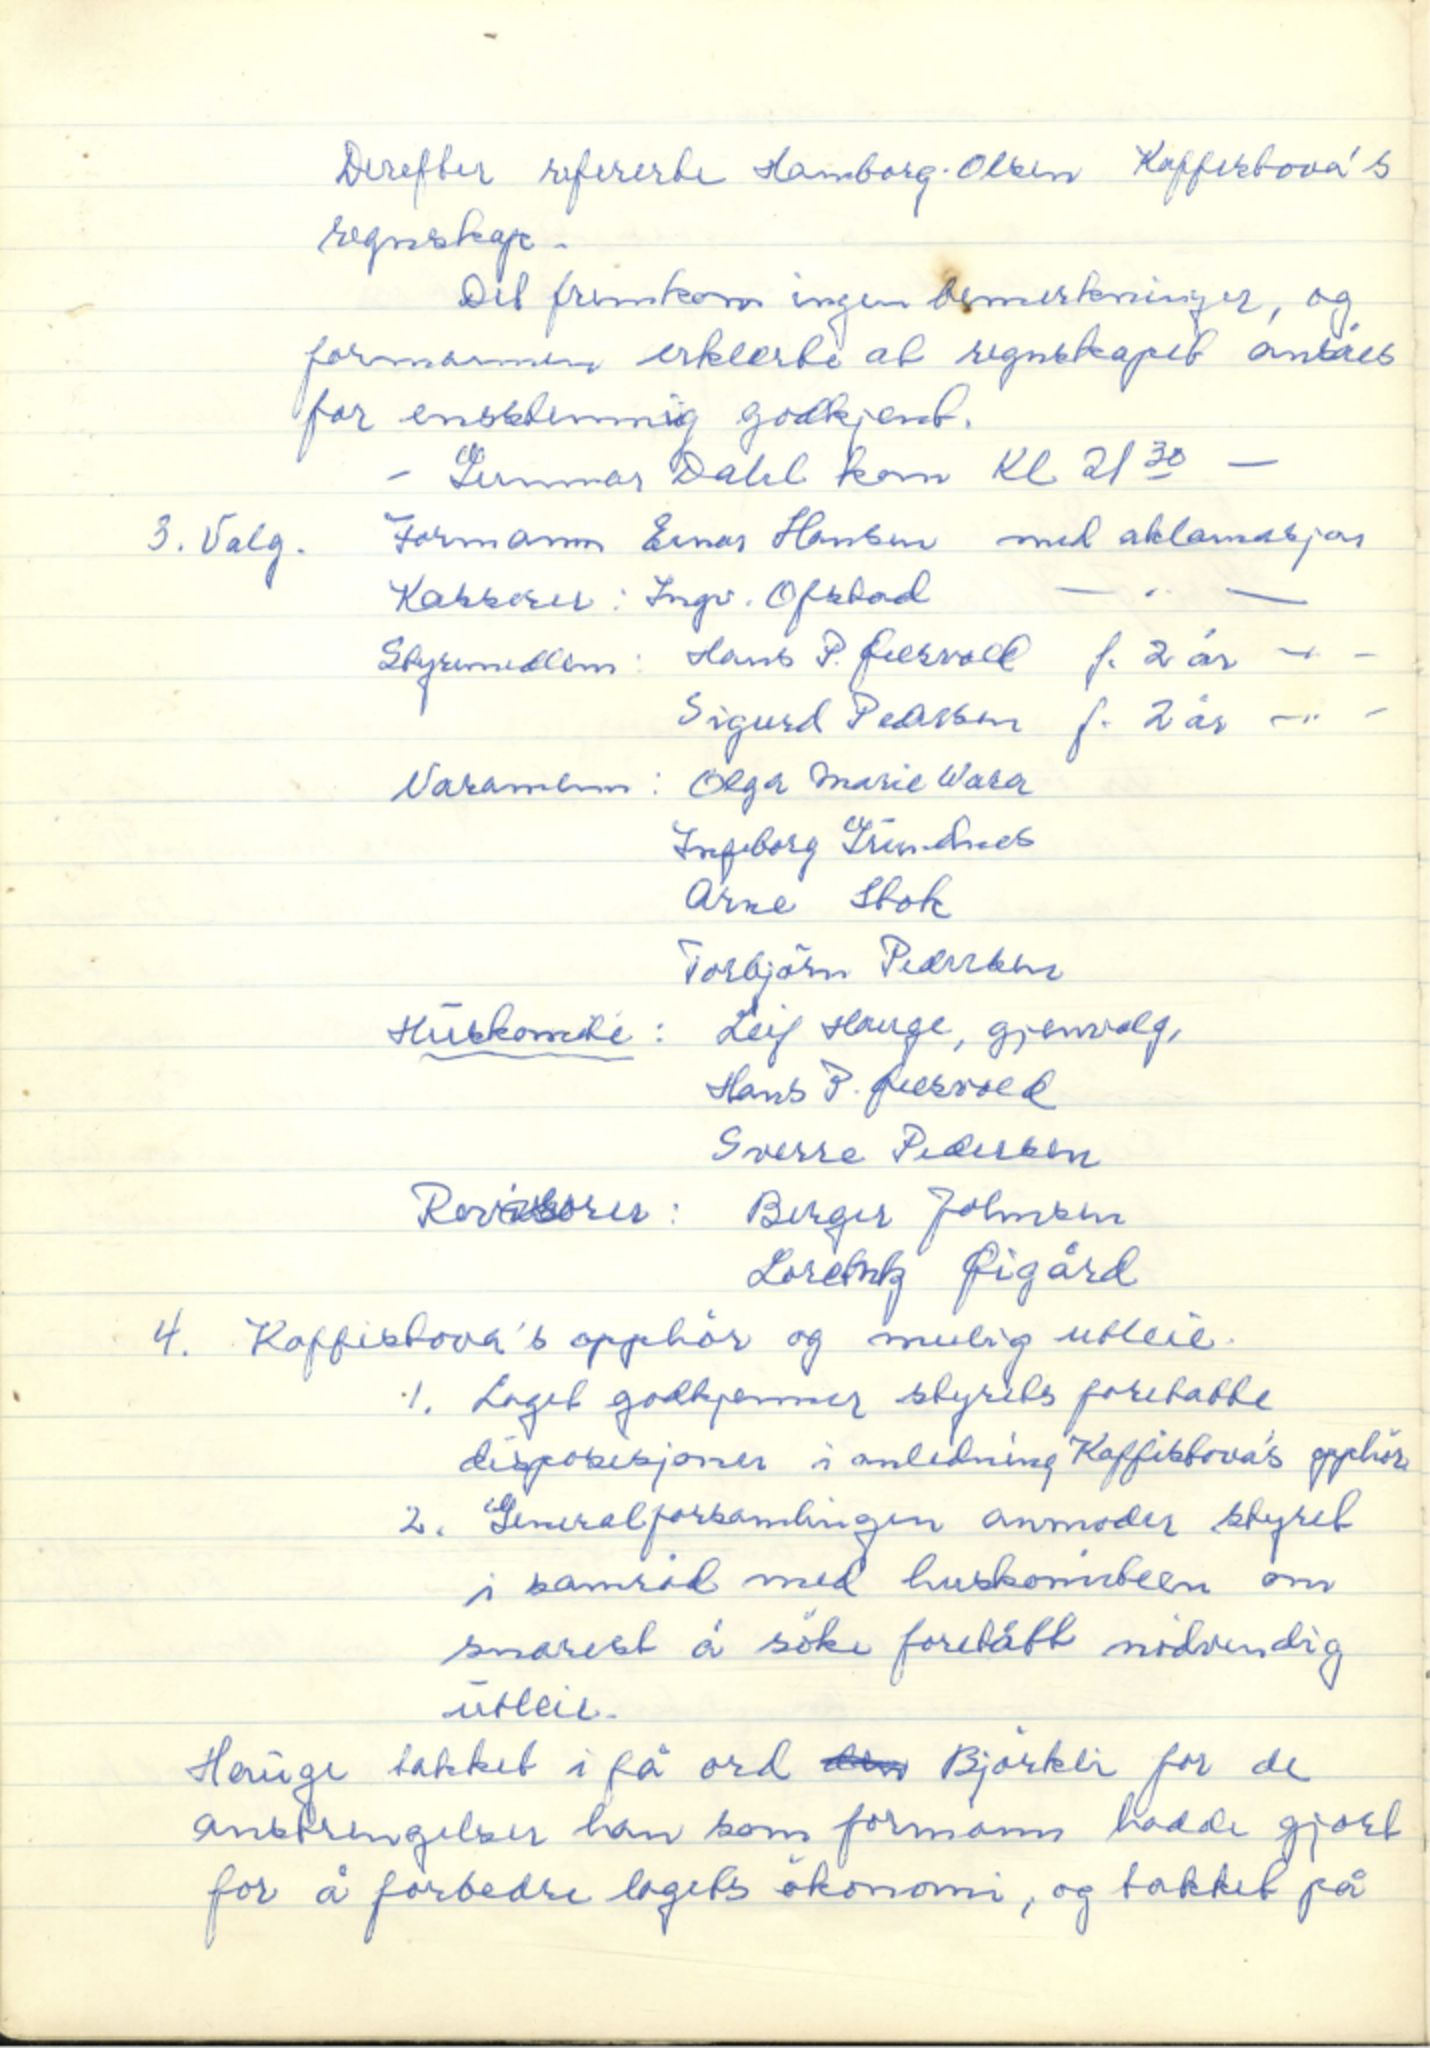 Derefter refererte Hamborg-Olsen Kaffistova's
regnskap.
Det fremkom ingen bemerkninger, og
formannen erklærte at regnskapet ansåes
for enstemmig godkjent.
- Gunnar Dahl kom Kl 21 30 -
3. Valg. Formann Einar Hansen med aklamasjon
Kasserer: Ingv. Ofstad — " —
Styremedlem: Hans P. f. 2 år - " -
Sigurd Pedersen f. 2 år - " -
Varamenn: Olga Marie Wara
Ingeborg Grundnes
Arne Stok
Torbjörn Pedersen
Huskomite: Leif Hauge, gjenvalg,
Hans P.
Sverre Pedersen
Revisorer: Berger Johnsen
Lorentz Øigård
4. Kaffistova's opphör og mulig utleie.
1. Laget godkjenner styrets foretatte
disposisjoner i anledning Kaffistova's opphör.
2. Generalforsamlingen anmoder styret
i samråd med huskomiteen om
snarest å söke foretått nödvendig
utleie.
Hauge takket i få ord Björkli for de
anstrengelser han som formann hadde gjort
for å forbedre lagets ökonomi, og takket på